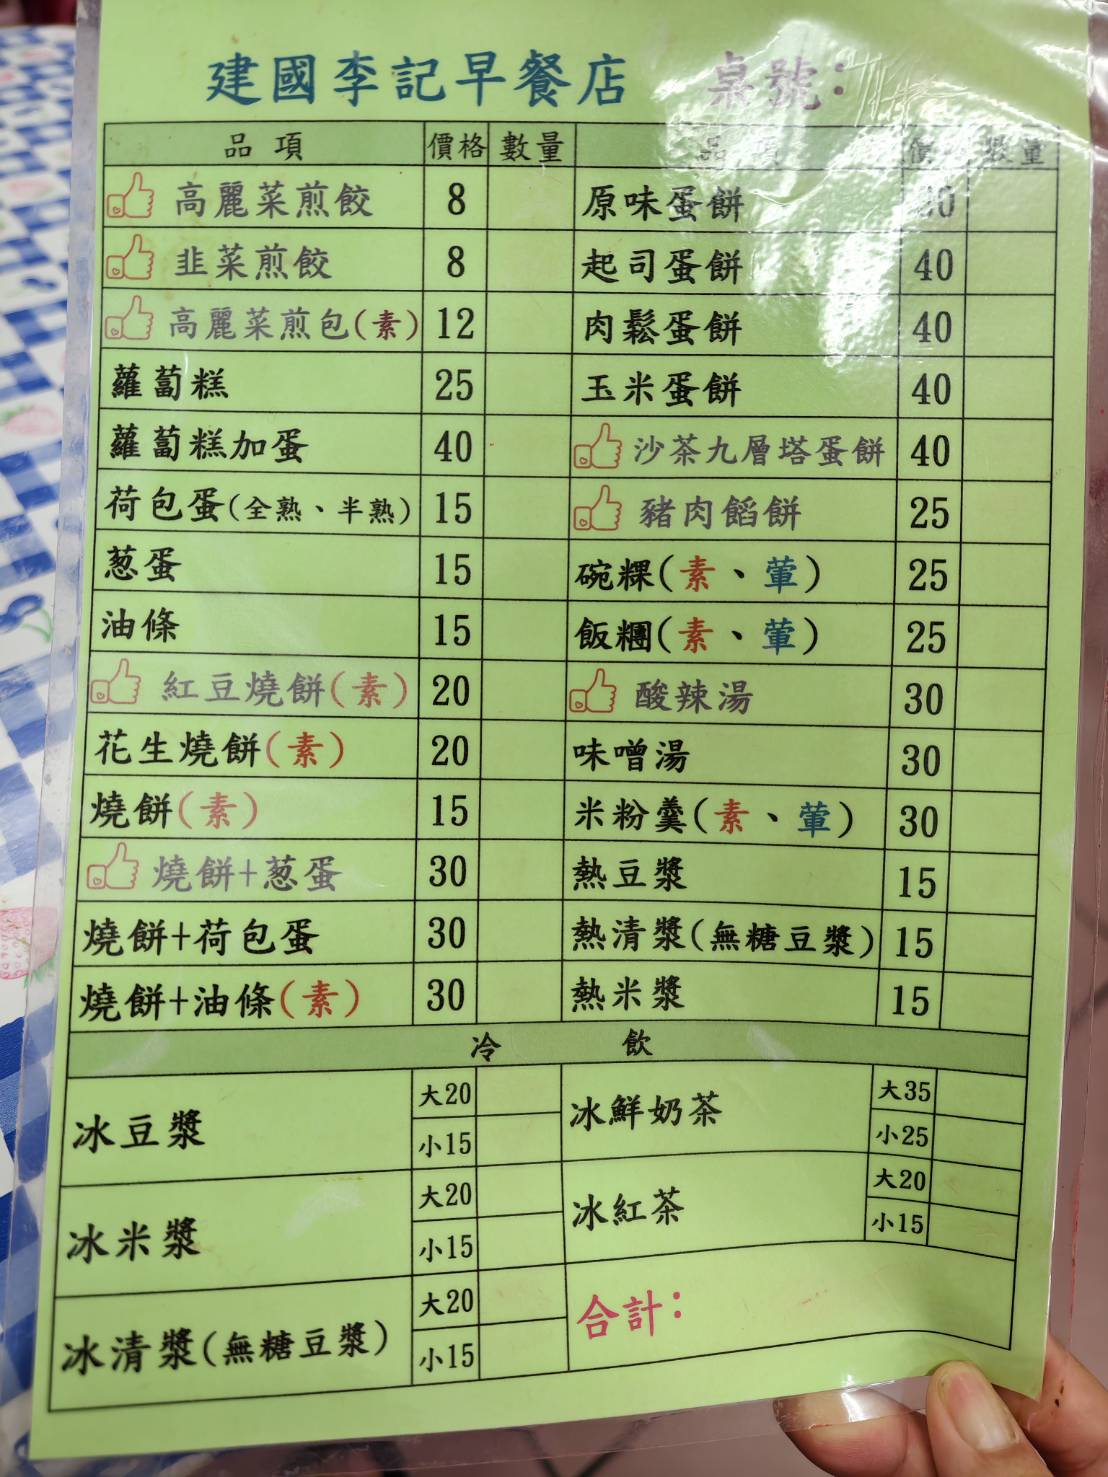 建國李記早餐店 桌號:
品項 價格 數量 品項 價格 數量
高麗菜煎餃 8 原味蛋餅 30
韭菜煎餃 8 起司蛋餅 40
高麗菜煎包(素) 12 肉鬆蛋餅 40
蘿蔔糕 25 玉米蛋餅 40
蘿蔔糕加蛋 40 沙茶九層塔蛋餅 40
荷包蛋(全熟、半熟) 15 豬肉餡餅 25
葱蛋 15 碗粿(素、葷) 25
油條 15 飯糰(素、葷) 25
紅豆燒餅(素) 20 酸辣湯 30
花生燒餅(素) 20 味噌湯 30
燒餅(素) 15 米粉羹(素、葷) 30
燒餅+葱蛋 30 熱豆漿 15
燒餅+荷包蛋 30 熱清漿(無糖豆漿) 15
燒餅+油條(素) 30 熱米漿 15
冷飲
冰豆漿 大20 小15
冰鮮奶茶 大35 小25
冰米漿 大20 小15
冰紅茶 大20 小15
冰清漿(無糖豆漿) 大20 小15
合計: